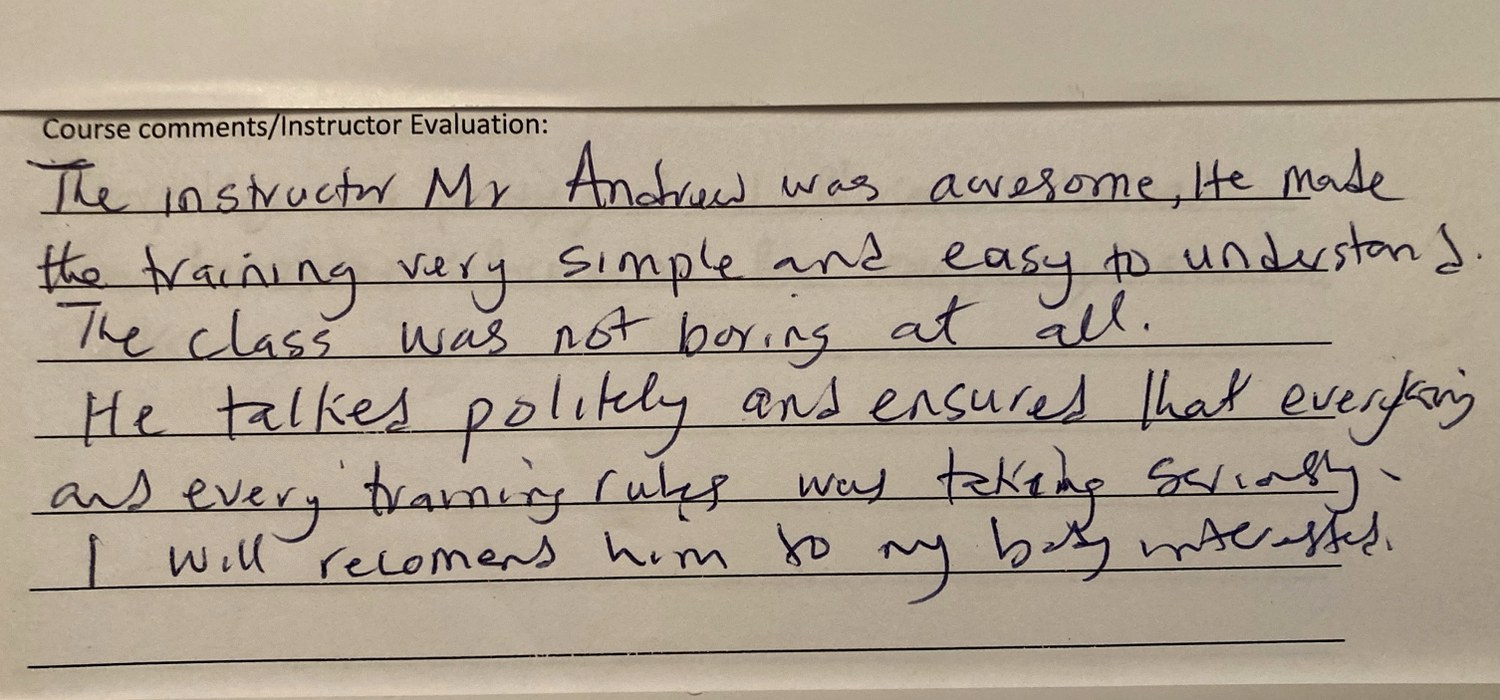 Course comments/Instructor Evaluation:
The instructor Mr Andrew was awesome, He made
the training very simple and easy to understand.
The class was not boring at all.
He talked politely and ensured that everything
and every training rules was taking seriously.
I will recomend him to my body interested.